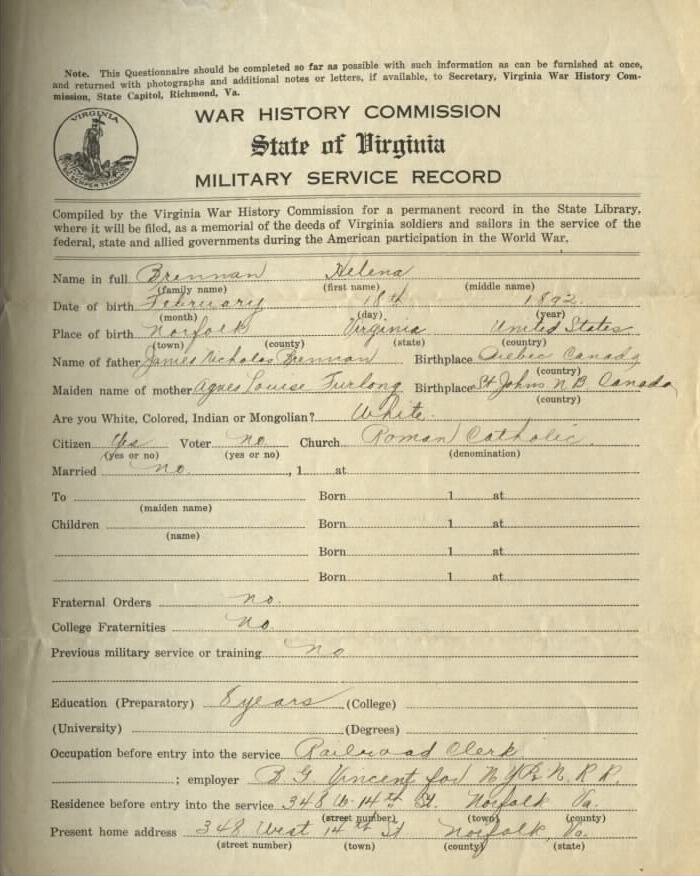 Note. This Questionnaire should be completed so far as possible with such information as can be furnished at once,
and returned with photographs and additional notes or letters, if available, to Secretary, Virginia War History Com-
mission, State Capitol, Richmond, Va.
VIRGINIA
SIC SEMPER TYRANNIS
WAR HISTORY COMMISSION
State of Virginia
MILITARY SERVICE RECORD
Compiled by the Virginia War History Commission for a permanent record in the State Library,
where it will be filed, as a memorial of the deeds of Virginia soldiers and sailors in the service of the
federal, state and allied governments during the American participation in the World War.
Name in full Brennan Helena
(family name) (first name) (middle name)
Date of birth February 18th 1892
(month) (day) (year)
Place of birth Norfolk Virginia United States
(town) (county) (state) (country)
Name of father James Nicholas Brennan Birthplace Quebec Canada
(country)
Maiden name of mother Agnes Louise Furlong Birthplace St Johns N B Canada
(country)
Are you White, Colored, Indian or Mongolian? White
Citizen Yes Voter no. Church Roman Catholic.
(yes or no) (yes or no) (denomination)
Married no. , 1 at
To Born 1 at
(maiden name)
Children Born 1 at
(name)
Born 1 at
Born 1 at
Fraternal Orders no.
College Fraternities no.
Previous military service or training no
Education (Preparatory) 8 years (College)
(University) (Degrees)
Occupation before entry into the service Railroad Clerk
; employer B. G. Vincent for N. R. R.
Residence before entry into the service 348 W. 14th St. Norfolk Va.
(street number) (town) (county)
Present home address 348 West 14th St Norfolk, Va.
(street number) (town) (county) (state)